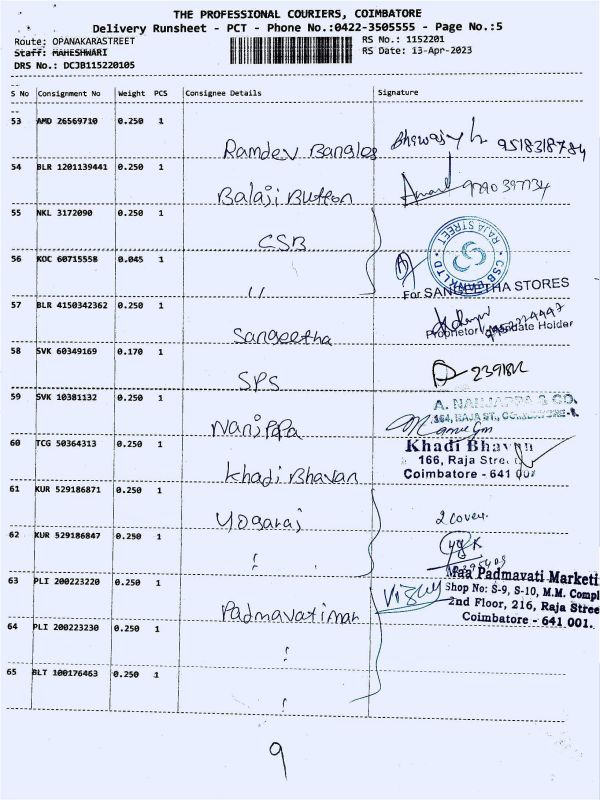 THE PROFESSIONAL COURIERS, COIMBATORE
Delivery Runsheet - PCT - Phone No.:0422-3505555 - Page No.:5
Route: OPANAKARASTREET RS No.: 1152201
Staff: MAHESHWARI RS Date: 13-Apr-2023
DRS No.: DCJB115220105
S No Consignment No Weight PCS Consignee Details Signature
53 AMD 26569710 0.250 1
Ramdev Bangles 9518318784
54 BLR 1201139441 0.250 1
Balaji Button Anand 9790397734
55 NKL 3172090 0.250 1
CSB
RAJA STREET
CSB BANK LTD
56 KOC 60715558 0.045 1
11
For SANGEETHA STORES
57 BLR 4150342362 0.250 1
Sangeetha
Proprietor / Mandate Holder
58 SVK 60349169 0.170 1
SPS
59 SVK 10381132 0.250 1
A. NANJAPPA & CO.
164, RAJA ST., COIMBATORE-1.
Nanjppa
60 TCG 50364313 0.250 1
Khadi Bhavan
166, Raja Street
Coimbatore - 641 001
Khadi Bhavan
61 KUR 529186871 0.250 1
Yogaraj 2 cover
62 KUR 529186847 0.250 1
Maa Padmavati Marketi
63 PLI 200223220 0.250 1
Shop No: S-9, S-10, M.M. Compl
2nd Floor, 216, Raja Stree
Coimbatore - 641 001.
Vijay
Padmavatimah
64 PLI 200223230 0.250 1
65 BLT 100176463 0.250 1
9